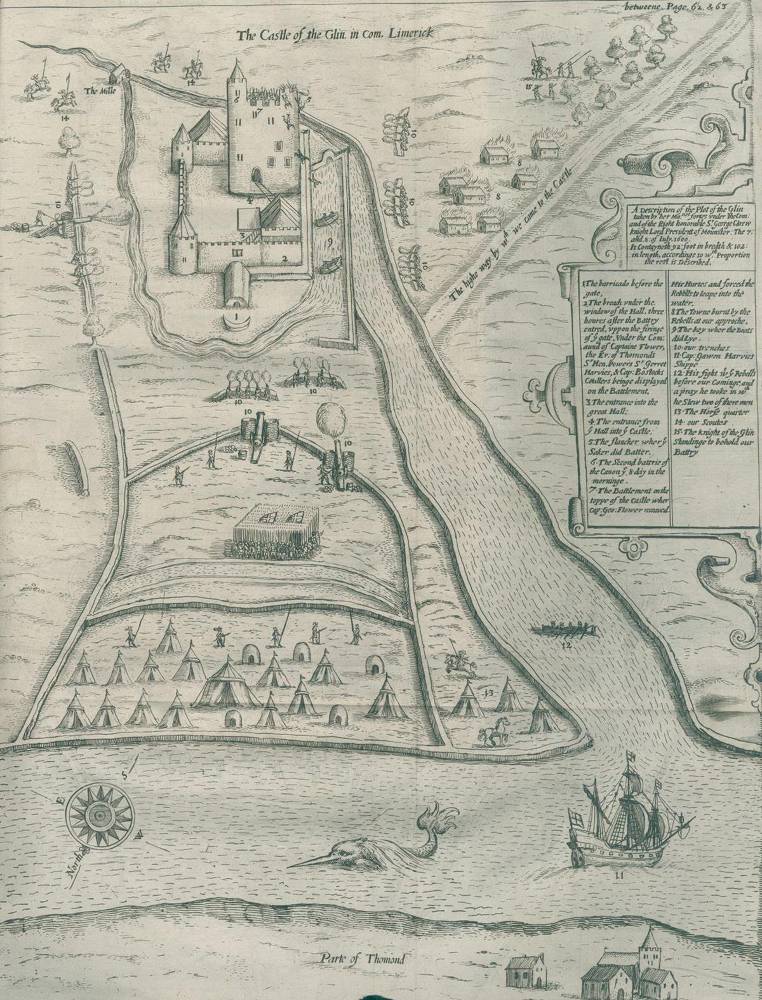 betweene Page. 62. & 63
The Castle of the Glin. in Com. Limerick
The Mille
14
14
15
10
10
10
8
8
7
6
5
4
3
2
11
9
1
The hight waye by wch we came to the Castle
A Description of the Plot of the Glin
taken by her Maties forces vnder the Com:
and of the Right honorable Sr. George Carew
Knight Lord President of Mounster. The 7.
and 8: of July. 1600.
It Conteyneth 92: foot in bredth & 102
in length, according to wch Proportion
the rest is Described.
1 The barricado before the
gate.
2 The breach vnder the
window of the Hall, three
howres after the Battry
entred, vppon the firinge
of ye gate, Vnder the Com:
aund of Captaine Flower,
the Er. of Thomonds
Sr. Hen. Powers Sr. Gerret
Harvies, & Cap. Bostocks
Coullers beinge displayed
on the Battlement.
3 The entrance into the
great Hall;
4 The entrance from
ye Hall into ye Castle.
5 The flancker wher ye
Saker did Batter.
6 The Second battrie of
the Canon ye. 8 day in the
morninge.
7 The Battlement on the
toppe of the Castle wher
Cap: Geo: Flower
His Hurtes and forced the
Rebells to leape into the
water.
8 The Towne burnt by the
Rebells at our approche.
9 The bay wher the Boats
did Lye.
10 our trenches
11 Cap: Gawen Harvies
Shippe
12 His fight wth ye Rebells
before our Cominge and
a pray he tooke in wch
he Slew two of there men
13 The Horse quarter
14 our Scoutes
15 The knight of the Glin
Standinge to behold our
Battry
10
10
10
10
12
13
S
E
W
North
11
Parte of Thomond